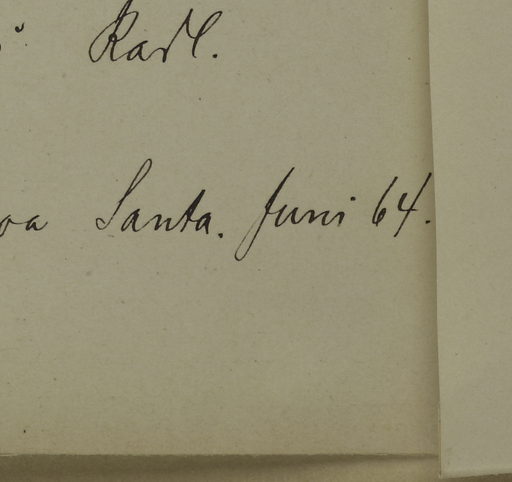 Radl.
oa Santa. Juni 64.